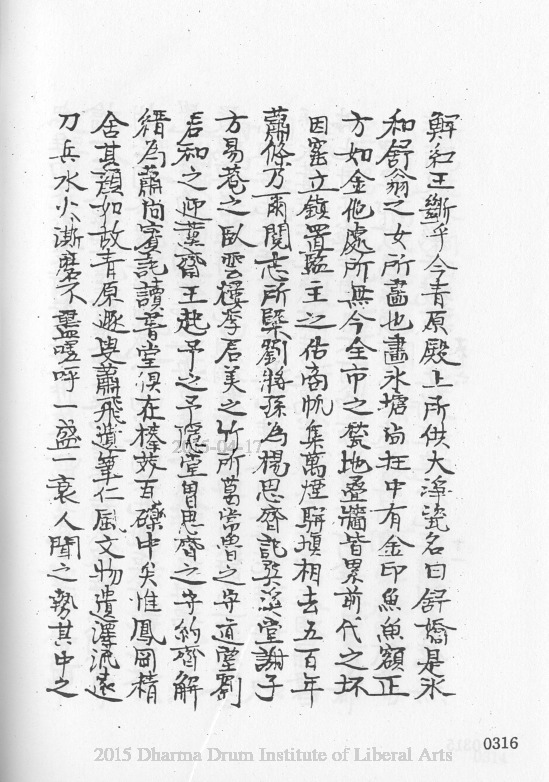 解和王斷乎今青原殿上所供大淨瓷名曰舒嬌是永
和舒翁之女所畵也畵氷塘尚在中有金印魚魚額正
方如金他處所無今全市之甃地壘牆皆累前代之坏
因窰立鎮置監主之估商帆集萬煙駢塡相去五百年
蕭條乃爾閱志所槩劉將孫為楊思齋記奬溪堂謝子
方易菴之臥雲樓李君美之竹所葛常曾之守道堂劉
君和之迎蓂齋王起予之予隱堂曾思齋之守約齋解
縉為蕭尚賓記讀書堂俱在榛莽瓦礫中矣惟鳳岡精
舍其顏如故青原遯叟蕭飛遺筆仁風文物遺澤流遠
刀兵水火漸磨不盡嗟呼一盛一衰人閒之勢其中之
2015-04-17
0316
2015 Dharma Drum Institute of Liberal Arts